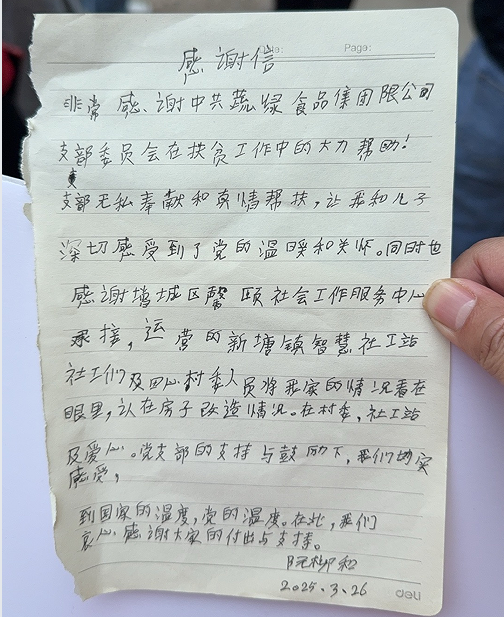 Page:
感谢信
非常感谢中共蔬绿食品集团限公司
支部委员会在扶贫工作中的大力帮助!
支部无私奉献和真情帮扶,让我和儿子
深切感受到了党的温暖和关怀。同时也
感谢增城区馨颐社会工作服务中心
承接,运营的新塘镇智慧社工站
社工们及田心村委人员将我家的情况看在
眼里,认在房子改造情况。在村委,社工站
及爱心。党支部的支持与鼓励下,我们切实
感受,
到国家的温度,党的温度。在此,我们
衷心感谢大家的付出与支持。
阮柳和
2025.3.26
deli